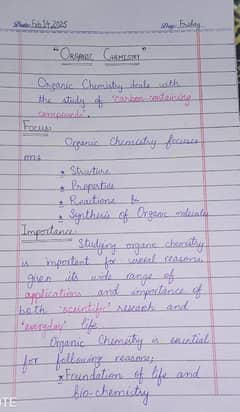 Date: Feb 14, 2025 Day: Friday
"ORGANIC CHEMISTRY"
Organic Chemistry deals with
the study of "carbon-containing
compounds".
Focus:
Organic Chemistry focuses
on:
* Structure
* Properties
* Reactions &
* Synthesis of Organic molecules
Importance:
Studying organic chemistry
is important for several reasons,
given its wide range of
applications and importance of
both "scientific" research and
"everyday" life.
Organic Chemistry is essential
for following reasons;
* Foundation of life and
bio-chemistry